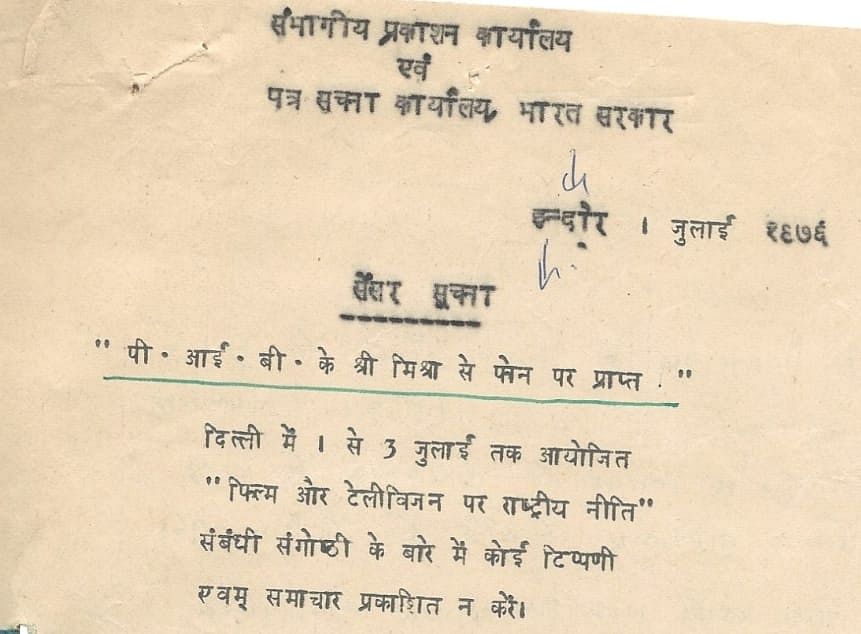 संभागीय प्रकाशन कार्यालय
एवं
पत्र सूचना कार्यालय, भारत सरकार
इन्दौर १ जुलाई १९७६
सेंसर सूचना
" पी · आई · बी · के श्री मिश्रा से फोन पर प्राप्त . "
दिल्ली में १ से 3 जुलाई तक आयोजित
" फिल्म और टेलीविजन पर राष्ट्रीय नीति"
संबंधी संगोष्ठी के बारे में कोई टिप्पणी
एवम् समाचार प्रकाशित न करें।